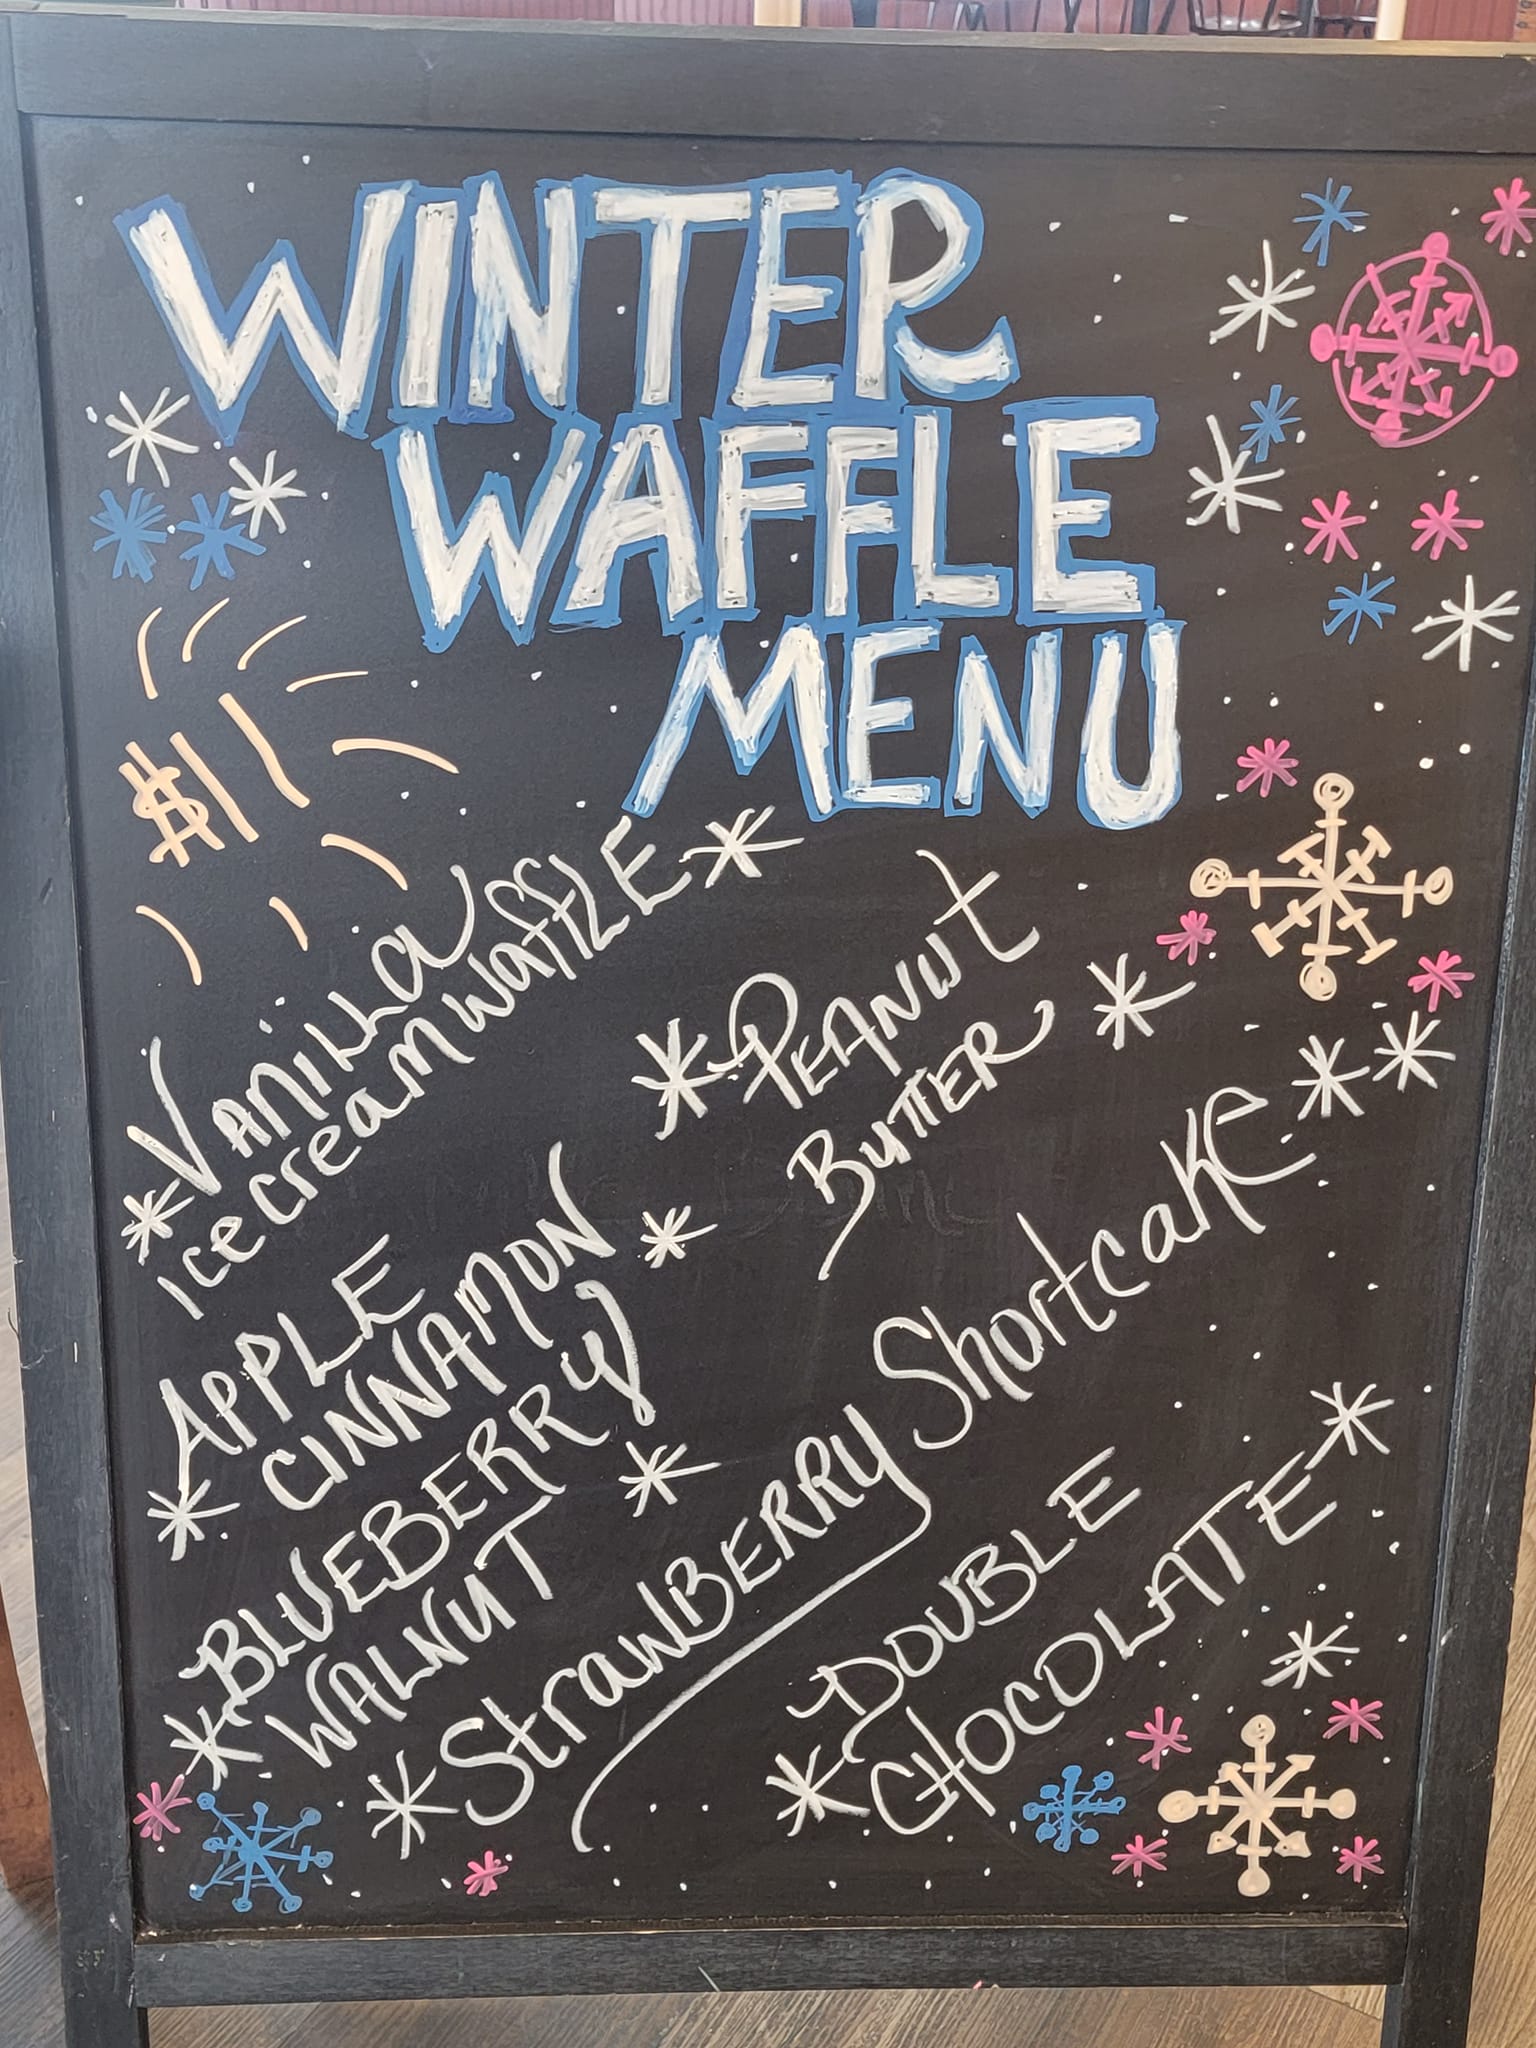 WINTER
WAFFLE
MENU
$11
VANILLA
ice cream waffLE
PEANUT
BUTTER
APPLE
CINNAMON
BLUEBERRY
WALNUT
StrawBERRY Shortcake
DOUBLE
CHOCOLATE